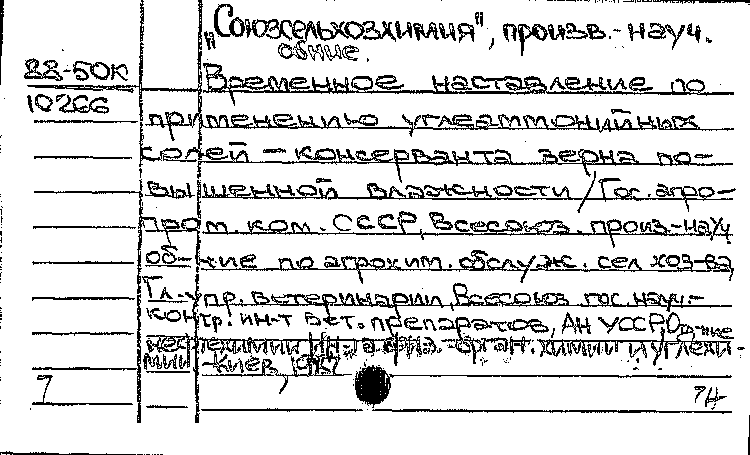 "Союзсельхозхимия", произв.-науч.
об-ние.
88-50к
Временное наставление по
10266
применению углеаммонийных
солей - консерванта зерна по-
вышенной влажности / Гос. агро-
пром. ком. СССР, Всесоюз. произ.-науч
об-ние по агрохим. обслуж. сел хоз-ва,
Гл. упр. ветеринарии, Всесоюз гос. науч.-
контр. ин-т вет. препаратов, АН УССР, Отд-ние
нефтехимии Ин-та физ.-орган. химии и углехи-
мии -Киев,
7